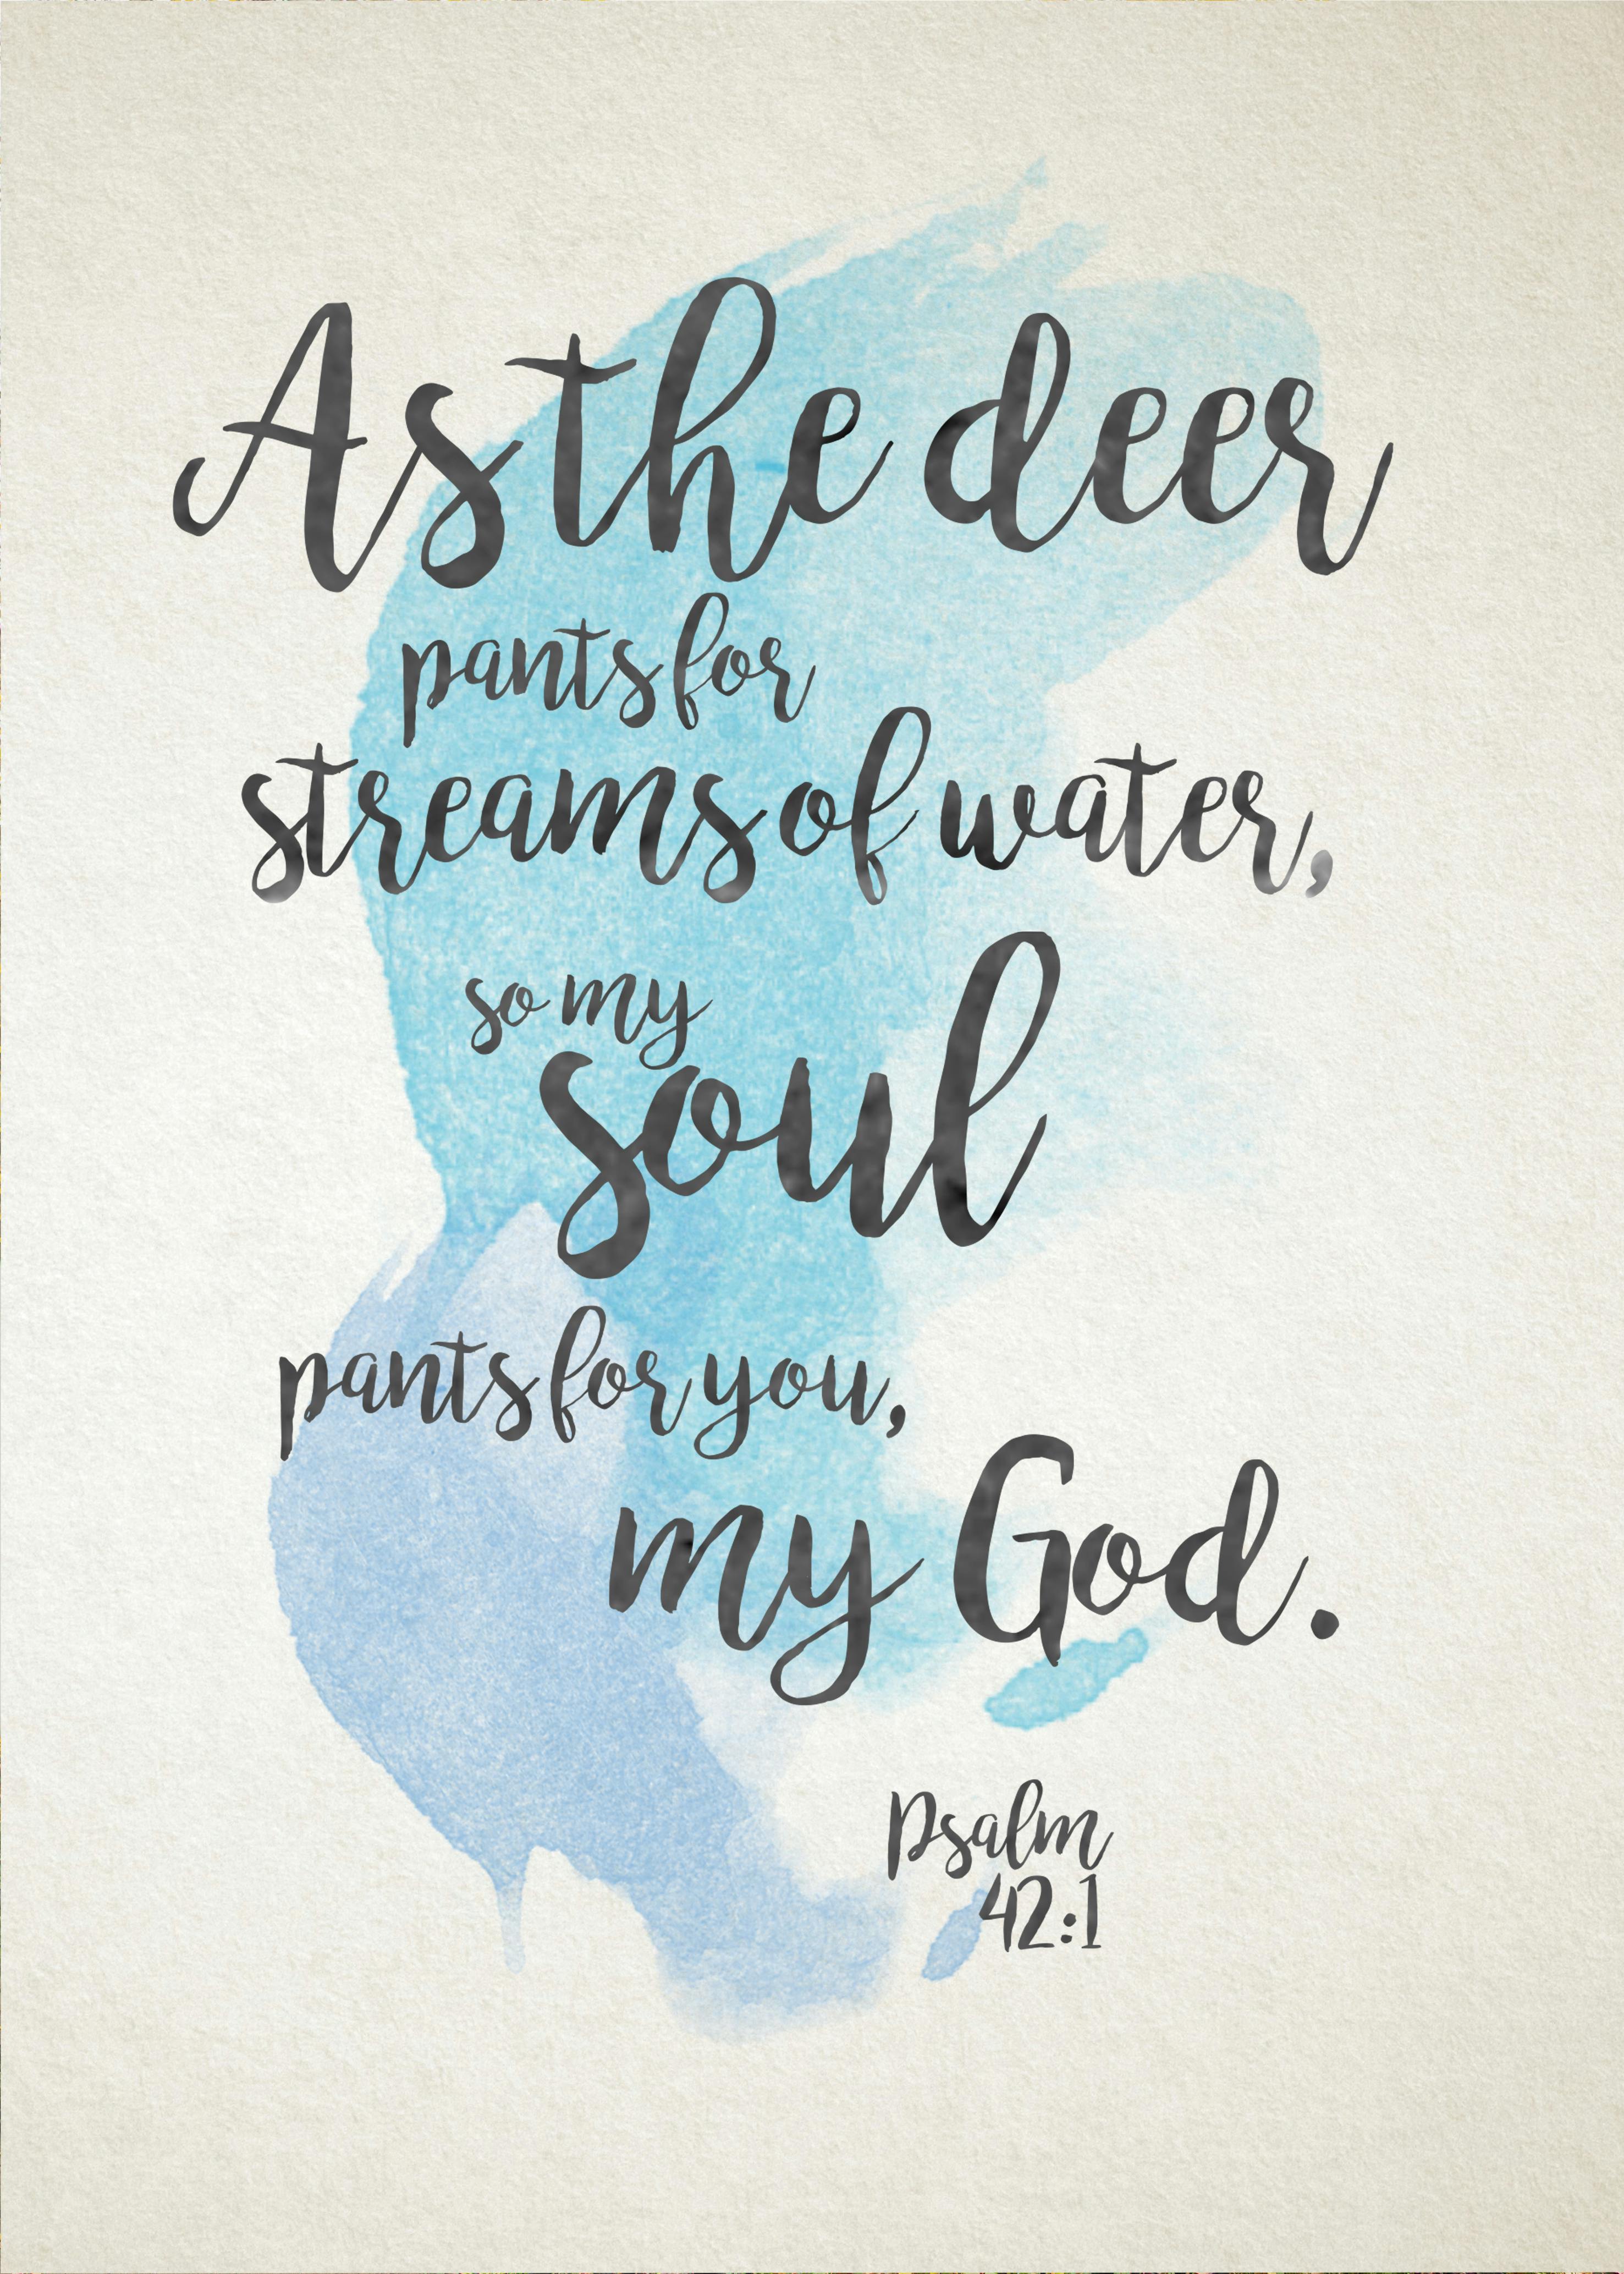 As the deer
pants for
streams of water,
so my
soul
pants for you,
my God.
Psalm
42:1